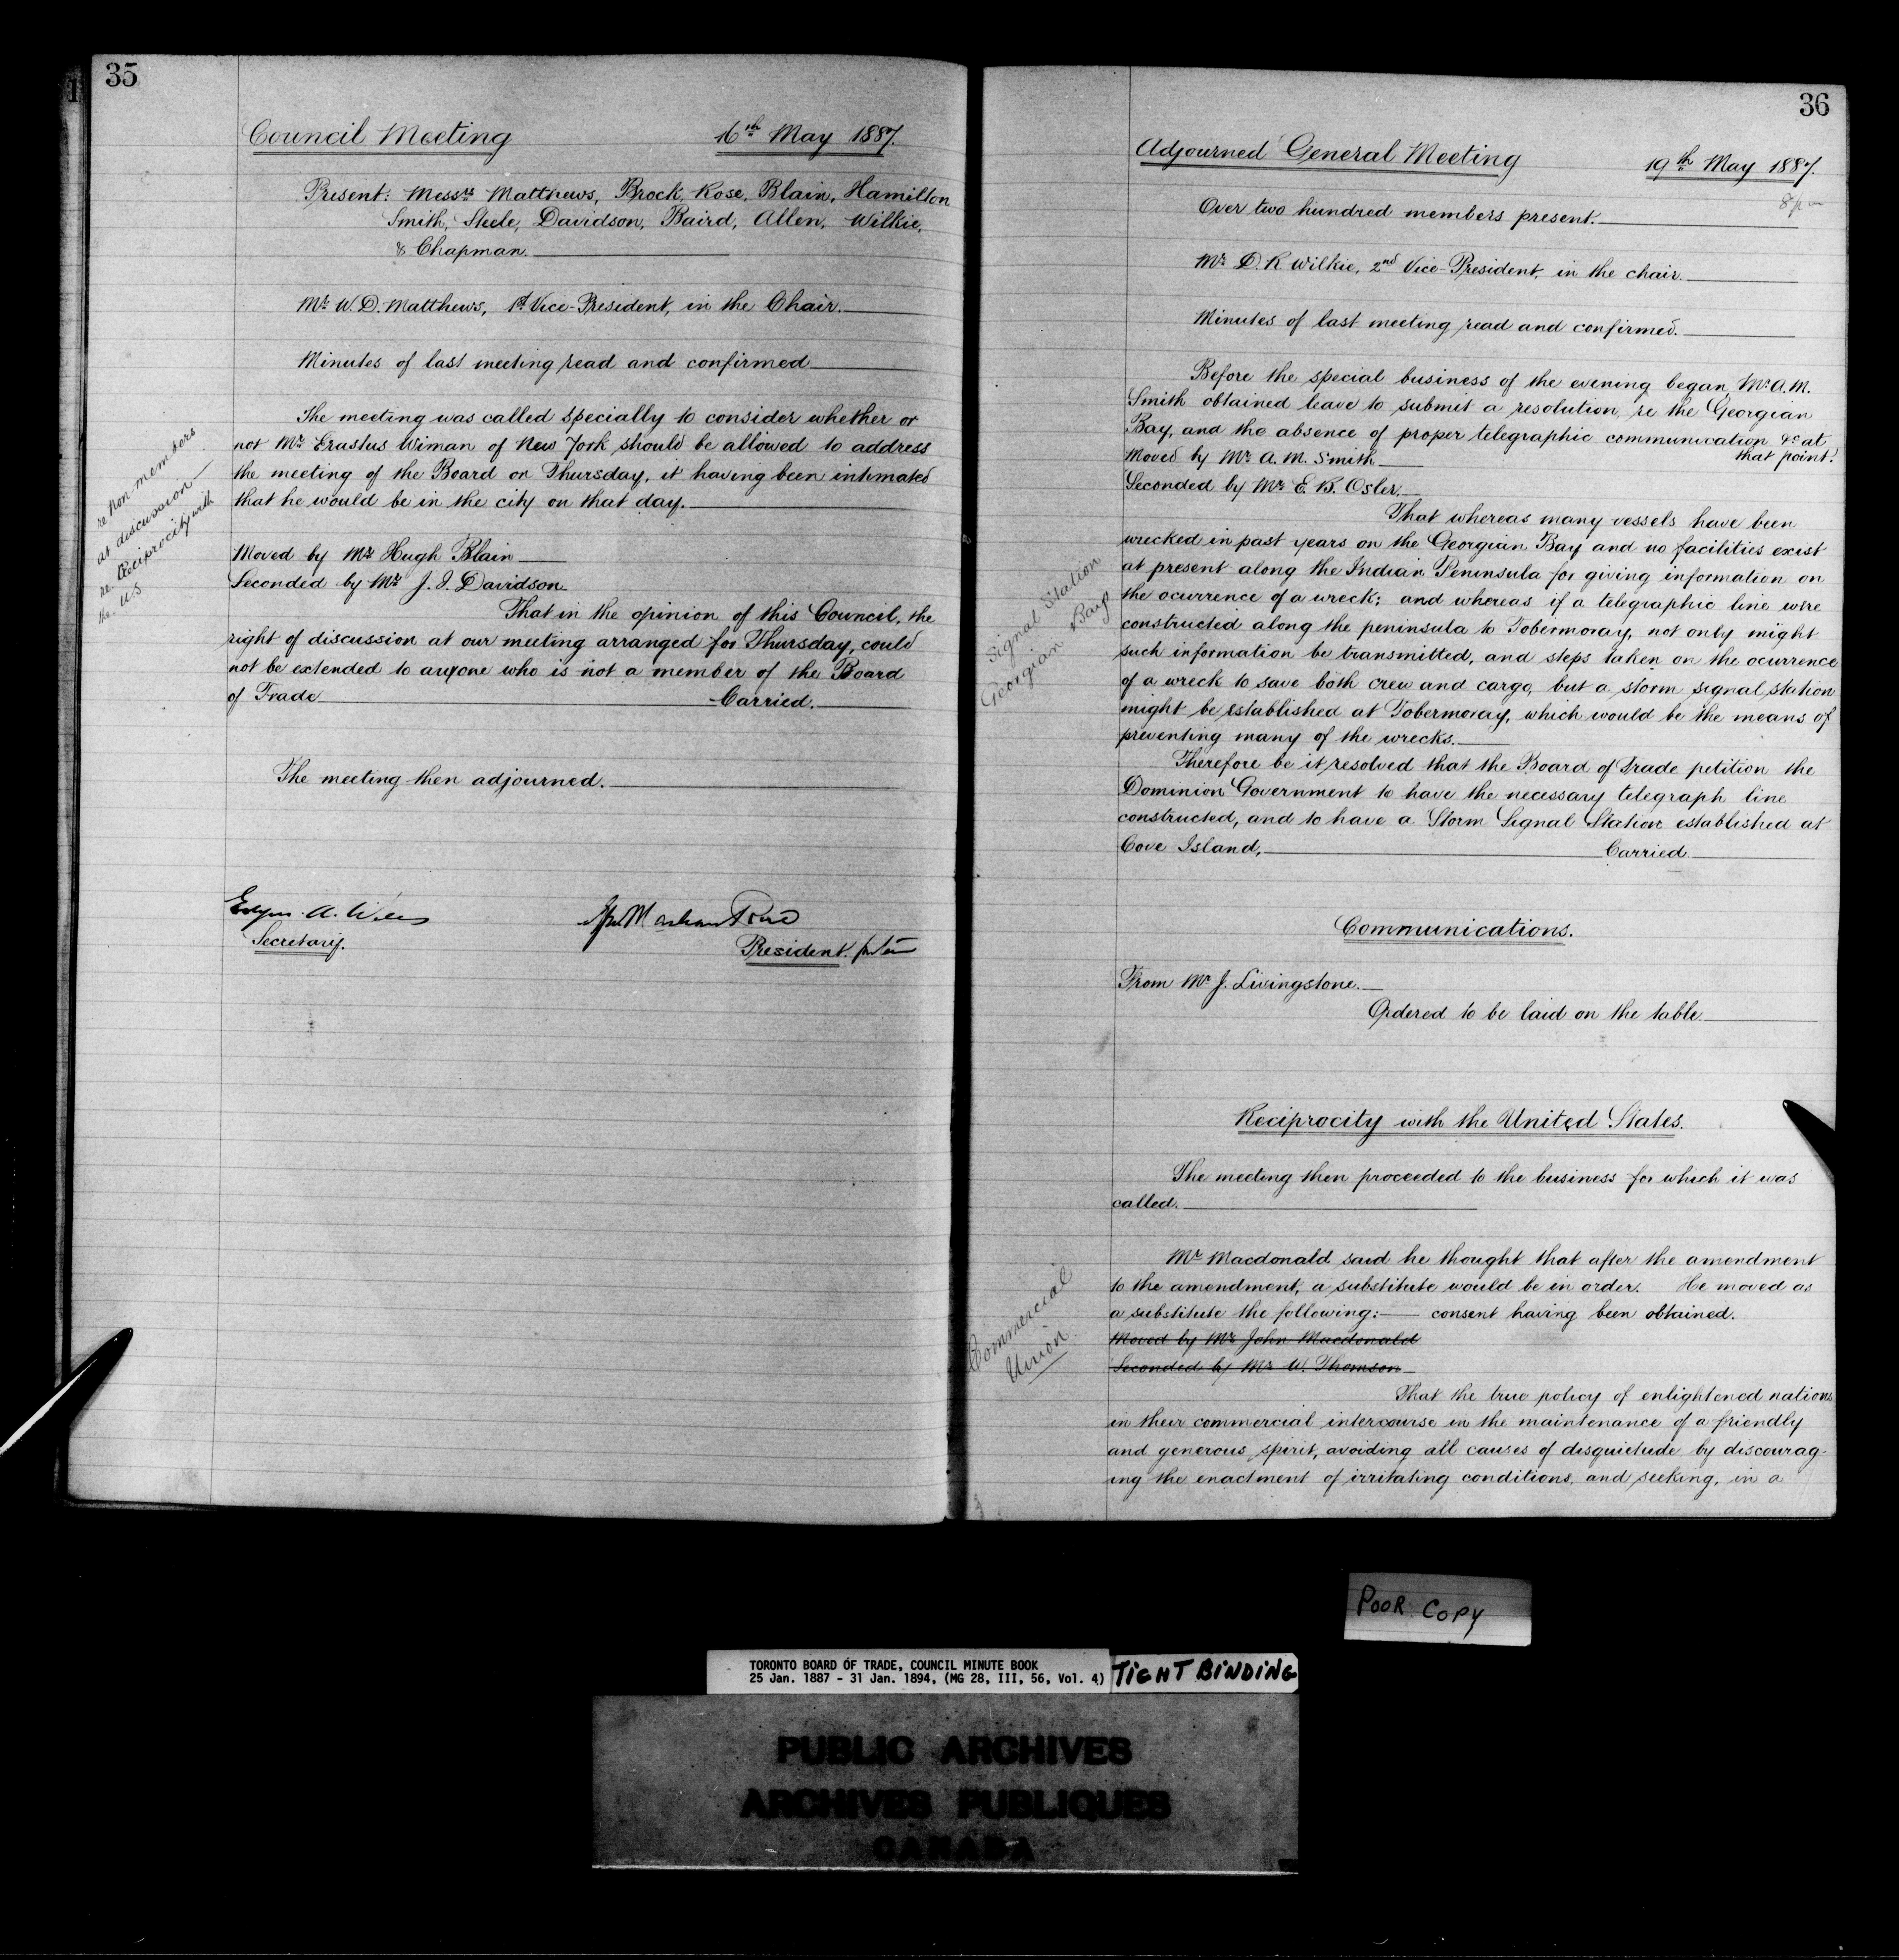 35
Council Meeting 16th May 1887.
Present: Messrs Matthews, Brock, Rose, Blain, Hamilton
Smith, Steele, Davidson, Baird, Allen, Wilkie,
& Chapman.
Mr W. D. Matthews, 1st Vice-President, in the Chair.
Minutes of last meeting read and confirmed
The meeting was called specially to consider whether or
not Mr Erastus Wiman of New York should be allowed to address
the meeting of the Board on Thursday, it having been intimated
that he would be in the city on that day.
re Non-members
at discussion
re. Reciprocity with
the U.S
Moved by Mr Hugh Blain
Seconded by Mr J. I. Davidson
That in the opinion of this Council, the
right of discussion at our meeting arranged for Thursday, could
not be extended to anyone who is not a member of the Board
of Trade Carried.
The meeting then adjourned.
Edgar A. Wills
Secretary.
President. pro tem
36
Adjourned General Meeting 19th May 1887.
8 pm
Over two hundred members present.
Mr D. R Wilkie, 2nd Vice-President, in the chair.
Minutes of last meeting read and confirmed.
Before the special business of the evening began, Mr A. M.
Smith obtained leave to submit a resolution, re the Georgian
Bay, and the absence of proper telegraphic communication &c at
that point.
Moved by Mr A. M. Smith
Seconded by Mr E. B. Osler.
Signal Station
Georgian Bay
That whereas many vessels have been
wrecked in past years on the Georgian Bay and no facilities exist
at present along the Indian Peninsula for giving information on
the ocurrence of a wreck; and whereas if a telegraphic line were
constructed along the peninsula to Tobermoray, not only might
such information be transmitted, and steps taken on the ocurrence
of a wreck to save both crew and cargo, but a storm signal station
might be established at Tobermoray, which would be the means of
preventing many of the wrecks.
Therefore be it resolved that the Board of Trade petition the
Dominion Government to have the necessary telegraph line
constructed, and to have a Storm Signal Station established at
Cove Island, Carried
Communications.
From Mr J. Livingstone.
Ordered to be laid on the table.
Reciprocity with the United States.
The meeting then proceeded to the business for which it was
called.
Commercial
Union
Mr Macdonald said he thought that after the amendment
to the amendment, a substitute would be in order. He moved as
a substitute the following:— consent having been obtained.
Moved by Mr John Macdonald
Seconded by Mr W. Thomson
That the true policy of enlightened nations
in their commercial intercourse in the maintenance of a friendly
and generous spirit, avoiding all causes of disquietude by discourag-
ing the enactment of irritating conditions, and seeking, in a
POOR COPY
TORONTO BOARD OF TRADE, COUNCIL MINUTE BOOK
25 Jan. 1887 - 31 Jan. 1894, (MG 28, III, 56, Vol. 4)
TIGHT BINDING
PUBLIC ARCHIVES
ARCHIVES PUBLIQUES
CANADA